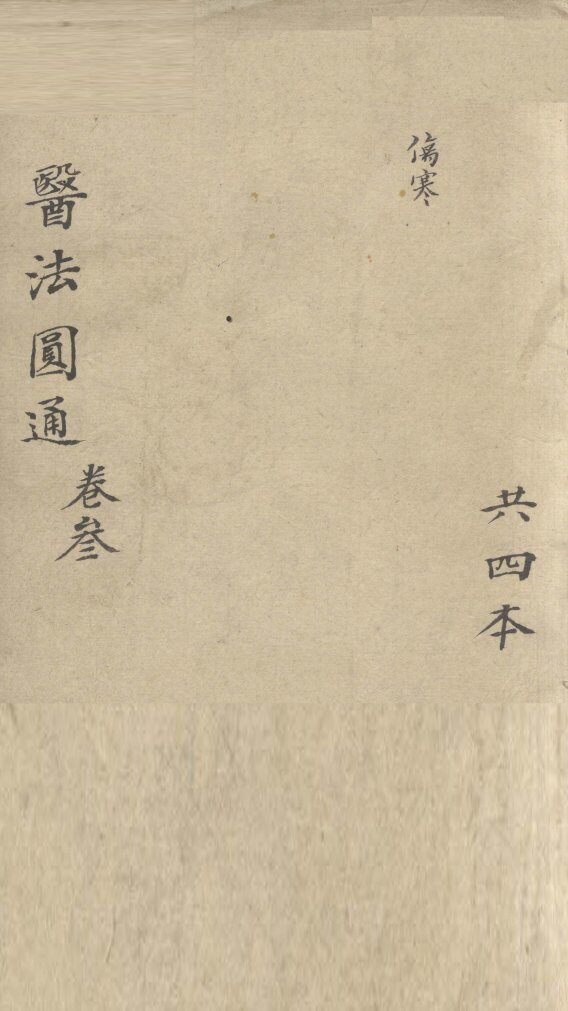 共四本
傷寒
醫法圓通
卷叁